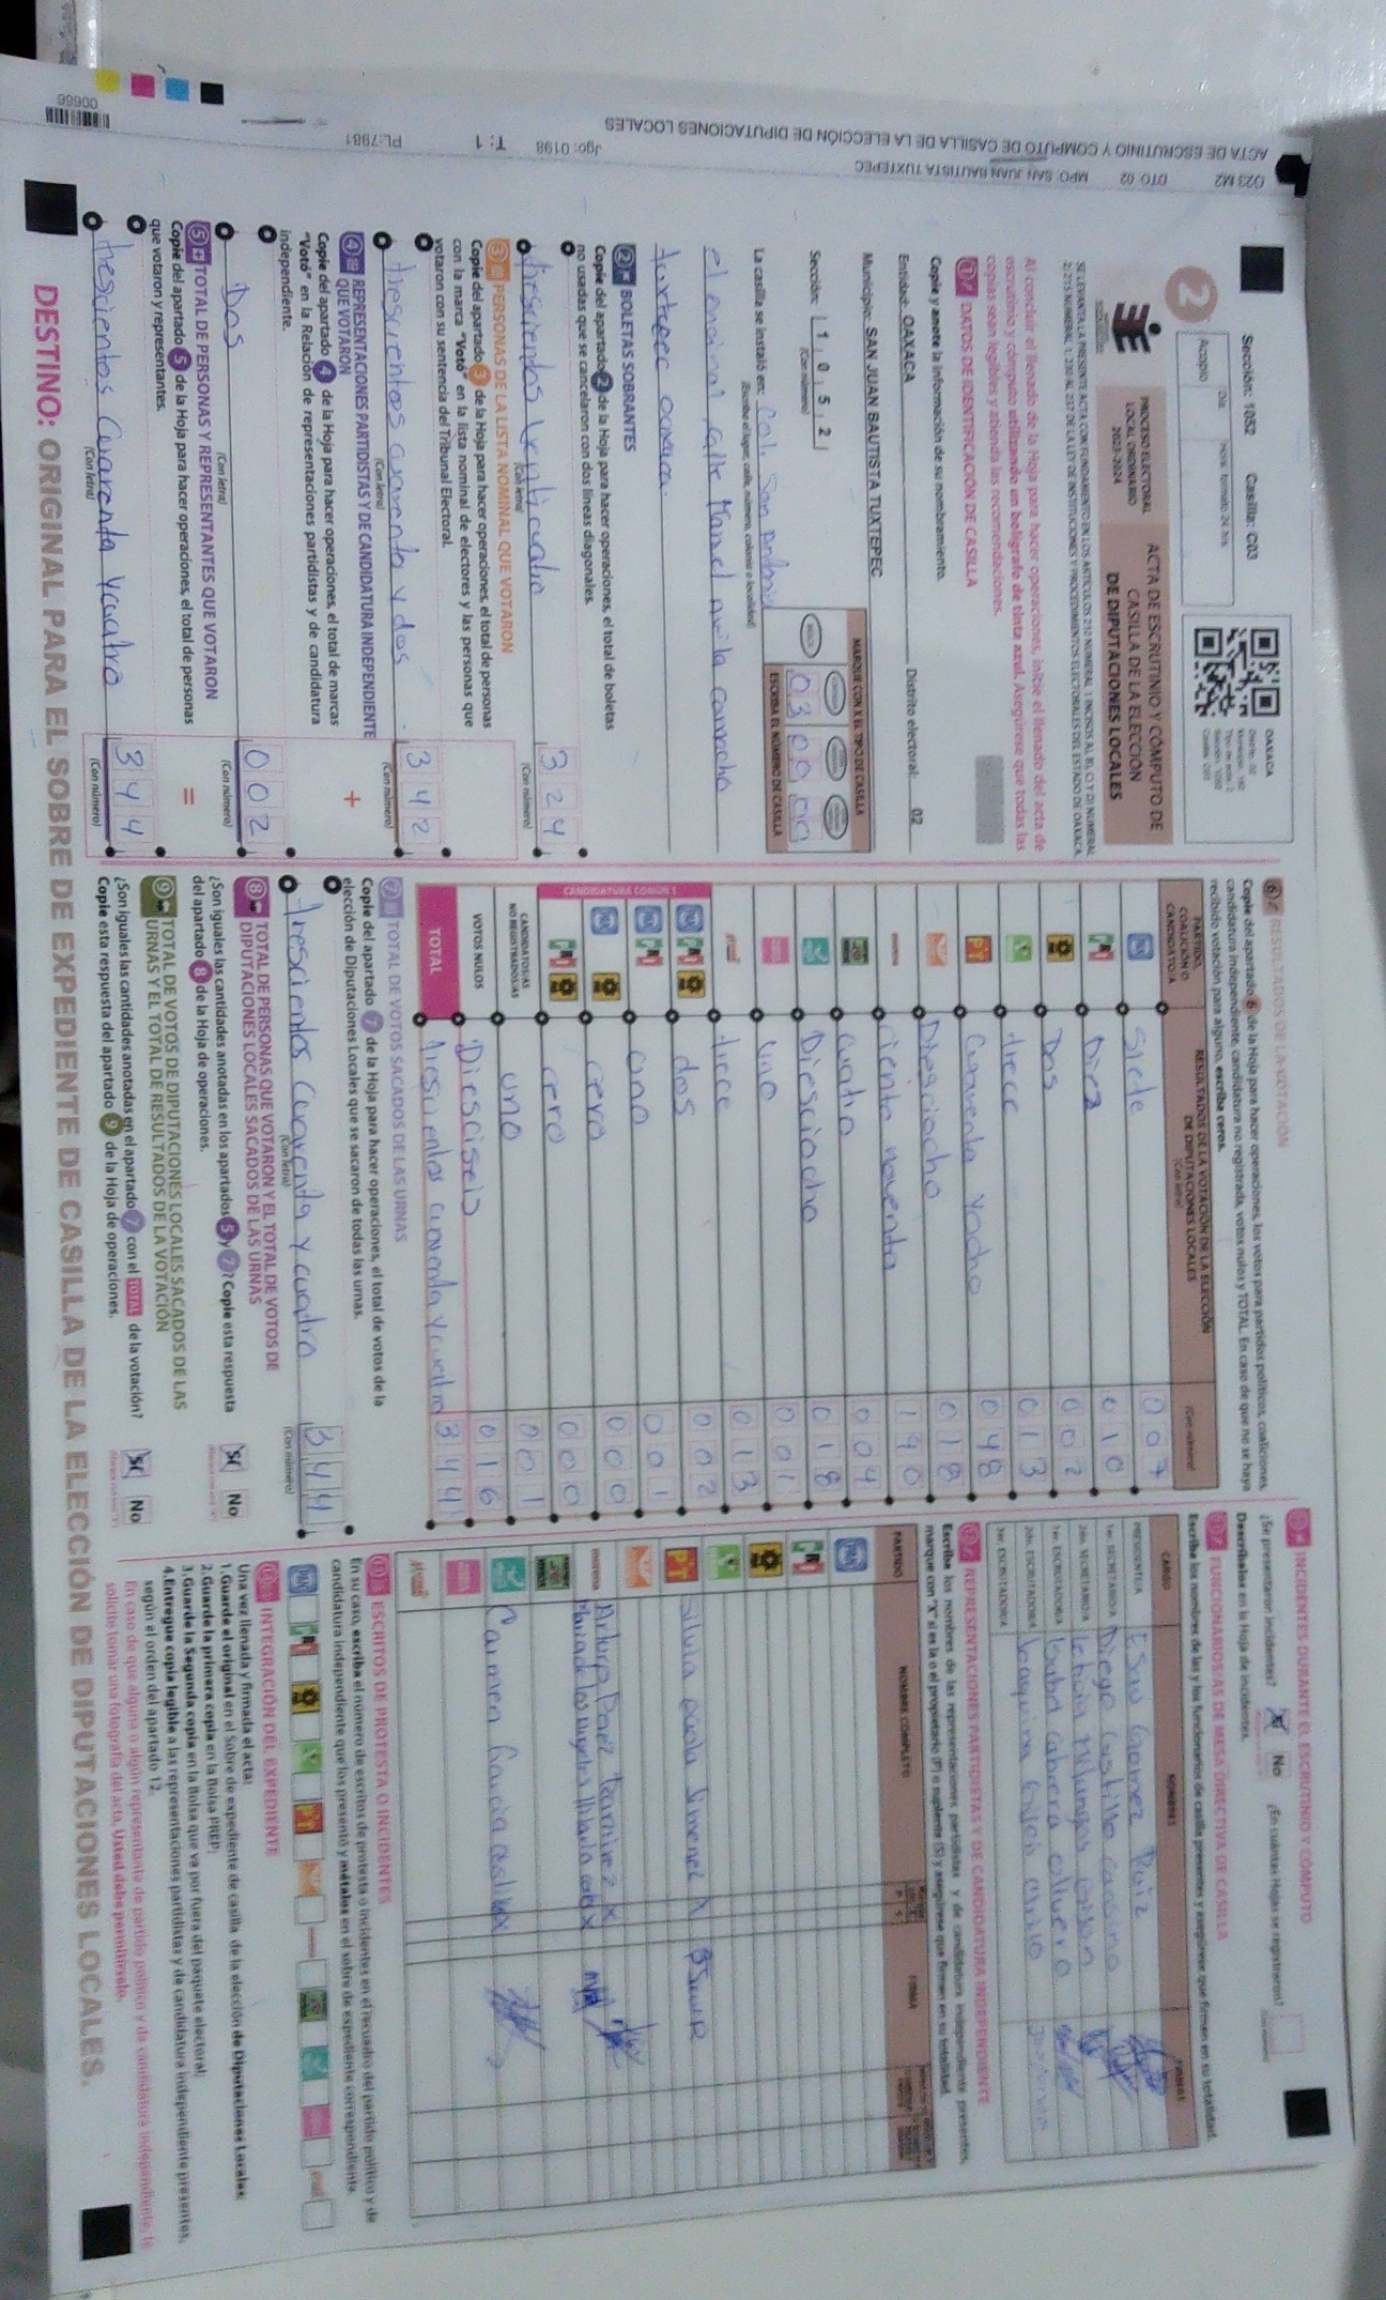 Q23 M2 DTO. 02 MPO. SAN JUAN BAUTISTA TUXTEPEC
ACTA DE ESCRUTINIO Y CÓMPUTO DE CASILLA DE LA ELECCIÓN DE DIPUTACIONES LOCALES
Jgo: 0198 T: 1 PL:7981
00666
Sección: 1052 Casilla: C03
OAXACA
Acopio
2
PROCESO ELECTORAL
LOCAL ORDINARIO
2023-2024
ACTA DE ESCRUTINIO Y CÓMPUTO DE
CASILLA DE LA ELECCIÓN
DE DIPUTACIONES LOCALES
Al concluir el llenado de la Hoja para hacer operaciones, inicie el llenado del acta de
escrutinio y cómputo utilizando un bolígrafo de tinta azul. Asegúrese que todas las
copias sean legibles y atienda las recomendaciones.
1 DATOS DE IDENTIFICACIÓN DE CASILLA
Copie y anote la información de su nombramiento.
Entidad: OAXACA Distrito electoral: 02
Municipio: SAN JUAN BAUTISTA TUXTEPEC
Sección: 1 0 5 2
(Con número)
MARQUE CON X EL TIPO DE CASILLA
ESCRIBA EL NÚMERO DE CASILLA
La casilla se instaló en: Col. San Antonio
(Escriba el lugar, calle, número, colonia o localidad)
el encinal, calle Manuel avila camacho
tuxtepec oaxaca.
2 BOLETAS SOBRANTES
Copie del apartado 2 de la Hoja para hacer operaciones, el total de boletas
no usadas que se cancelaron con dos líneas diagonales.
trescientos veinticuatro 3 2 4
(Con letra) (Con número)
3 PERSONAS DE LA LISTA NOMINAL QUE VOTARON
Copie del apartado 3 de la Hoja para hacer operaciones, el total de personas
con la marca "Votó" en la lista nominal de electores y las personas que
votaron con su sentencia del Tribunal Electoral.
trescientos cuarenta y dos 3 4 2
(Con letra) (Con número)
4 REPRESENTACIONES PARTIDISTAS Y DE CANDIDATURA INDEPENDIENTE
QUE VOTARON
Copie del apartado 4 de la Hoja para hacer operaciones, el total de marcas
"Votó" en la Relación de representaciones partidistas y de candidatura
independiente.
+
Dos 0 0 2
(Con letra) (Con número)
5 TOTAL DE PERSONAS Y REPRESENTANTES QUE VOTARON
Copie del apartado 5 de la Hoja para hacer operaciones, el total de personas
que votaron y representantes.
=
trescientos Cuarenta y cuatro 3 4 4
(Con letra) (Con número)
6 RESULTADOS DE LA VOTACIÓN
Copie del apartado 6 de la Hoja para hacer operaciones, los votos para partidos políticos, coaliciones,
candidatura independiente, candidatura no registrada, votos nulos y TOTAL. En caso de que no se haya
recibido votación para alguno, escriba ceros.
PARTIDO, COALICIÓN O CANDIDATO/A
RESULTADOS DE LA VOTACIÓN DE LA ELECCIÓN
DE DIPUTACIONES LOCALES
(Con letra) (Con número)
PAN Siete 0 0 7
PRI Diez 0 1 0
PRD Dos 0 0 2
trece 0 1 3
PT Cuarenta y ocho 0 4 8
Diesciocho 0 1 8
morena ciento noventa 1 9 0
cuatro 0 0 4
Diesciocho 0 1 8
uno 0 0 1
trece 0 1 3
CANDIDATURA COMÚN 1
PAN PRI PRD dos 0 0 2
PAN PRI uno 0 0 1
PAN PRD cero 0 0 0
PRI PRD cero 0 0 0
CANDIDATOS/AS
NO REGISTRADOS/AS uno 0 0 1
VOTOS NULOS Diesciseis 0 1 6
TOTAL trescientos cuarenta y cuatro 3 4 4
7 TOTAL DE VOTOS SACADOS DE LAS URNAS
Copie del apartado 7 de la Hoja para hacer operaciones, el total de votos de la
elección de Diputaciones Locales que se sacaron de todas las urnas.
trescientos Cuarenta y cuatro 3 4 4
(Con letra) (Con número)
8 TOTAL DE PERSONAS QUE VOTARON Y EL TOTAL DE VOTOS DE
DIPUTACIONES LOCALES SACADOS DE LAS URNAS
¿Son iguales las cantidades anotadas en los apartados 5 y 7? Copie esta respuesta
del apartado 8 de la Hoja de operaciones.
SÍ No
9 TOTAL DE VOTOS DE DIPUTACIONES LOCALES SACADOS DE LAS
URNAS Y EL TOTAL DE RESULTADOS DE LA VOTACIÓN
¿Son iguales las cantidades anotadas en el apartado 7 con el TOTAL de la votación?
Copie esta respuesta del apartado 9 de la Hoja de operaciones.
SÍ No
INCIDENTES DURANTE EL ESCRUTINIO Y CÓMPUTO
¿Se presentaron incidentes? No ¿En cuántas Hojas se registraron?
Descríbalos en la Hoja de incidentes.
FUNCIONARIOS/AS DE MESA DIRECTIVA DE CASILLA
Escriba los nombres de las y los funcionarios de casilla presentes y asegúrese que firmen en su totalidad.
CARGO NOMBRES FIRMAS
PRESIDENTE/A Esau Gomez Ruiz
1er. SECRETARIO/A Diego Castillo
2do. SECRETARIO/A leticia
1er. ESCRUTADOR/A Isabel cabrera
2do. ESCRUTADOR/A Joaquina
3er. ESCRUTADOR/A
REPRESENTACIONES PARTIDISTAS Y DE CANDIDATURA INDEPENDIENTE
Escriba los nombres de las representaciones partidistas y de candidatura independiente presentes,
marque con "X" si es la o el propietario (P) o suplente (S) y asegúrese que firmen en su totalidad.
PARTIDO NOMBRE COMPLETO FIRMA
PAN
PRI
PRD
PT Silvia paola Jimenez X
morena Arturo Paez Ramirez x
Carmen Garcia
11 ESCRITOS DE PROTESTA O INCIDENTES
En su caso, escriba el número de escritos de protesta o incidentes en el recuadro del partido político y de
candidatura independiente que los presentó y métalos en el sobre de expediente correspondiente.
INTEGRACIÓN DEL EXPEDIENTE
Una vez llenada y firmada el acta:
1. Guarde el original en el Sobre de expediente de casilla de la elección de Diputaciones Locales;
2. Guarde la primera copia en la Bolsa PREP;
3. Guarde la Segunda copia en la Bolsa que va por fuera del paquete electoral;
4. Entregue copia legible a las representaciones partidistas y de candidatura independiente presentes,
según el orden del apartado 12.
En caso de que alguna o algún representante de partido político y de candidatura independiente, le
solicite tomar una fotografía del acta, Usted debe permitírselo.
DESTINO: ORIGINAL PARA EL SOBRE DE EXPEDIENTE DE CASILLA DE LA ELECCIÓN DE DIPUTACIONES LOCALES.